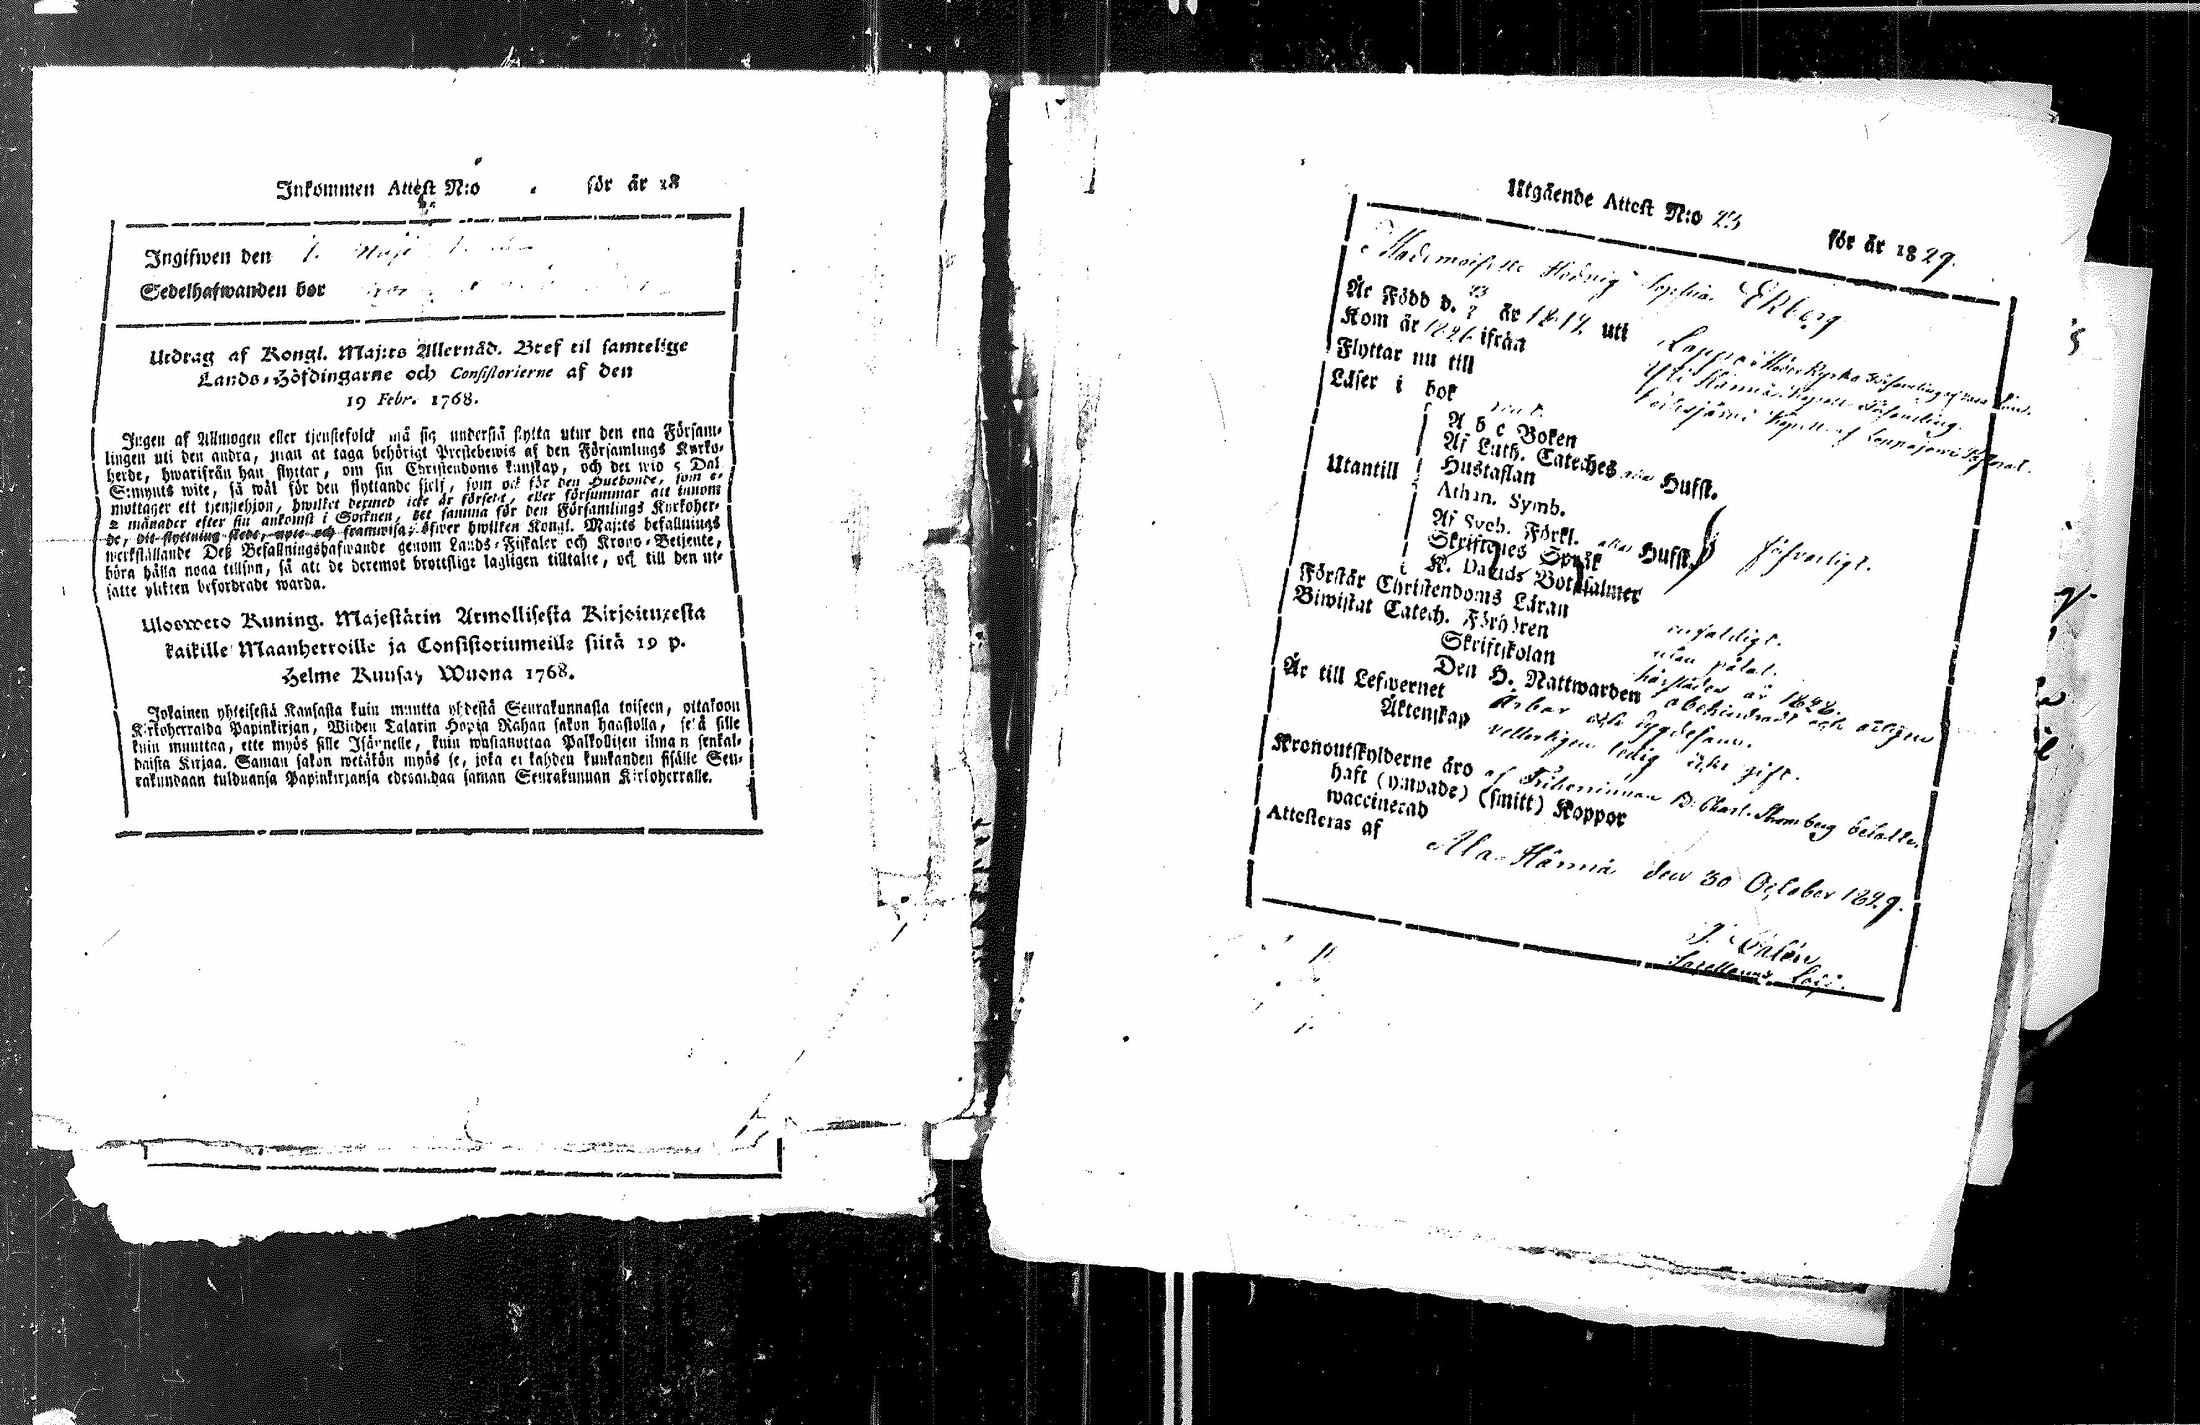 Inkommen Attest N:o för år 18
Ingifwen den
Sedelhafwanden bor
Utdrag af Kongl. Maj:ts Allernåd. Bref til samtelige
Lands-Höfdingarne och Consistorierne af den
19 Febr. 1768.
Ingen af Allmogen eller tjenstefolck må sig understå flytta utur den ena Försam-
lingen uti den andra, utan at taga behörigt Prestebewis af den Församlings Kyrko-
herde, hwarifrån han flyttar, om sin Christendoms kunskap, och det wid 5 Dal.
S:mynts wite, så wäl för den flyttande sjelf, som ock för den Husbonde, som e-
mottager ett tjenstehjon, hwilket dermed icke är försedt, eller försummar att innom
2 månader efter sin ankomst i Socknen, det samma för den Församlings Kyrkoher-
de, dit flyttning skedt, upte och framwisa; öfwer hwilken Kongl. Maj:ts befallnings
werkställande Deß Befallningshafwande genom Lands-Fiskaler och Krono-Betjente,
böra hålla noga tillsyn, så att de deremot brottslige lagligen tilltalte, och till den ut-
satte plikten befordrade warda.
Ulosweto Kuning. Majestätin Armollisesta Kirjoituxesta
kaikille Maanherroille ja Consistoriumeille siitä 19 p.
Helme Kuusa, Wuona 1768.
Jokainen yhteisestä Kansasta kuin muutta yhdestä Seurakunnasta toiseen, ottakoon
Kirkoherralda Papinkirjan, Wiiden Talarin Hopia Rahan sakon haastolla, sekä sille
kuin muuttaa, ette myös sille Isännelle, kuin wastanottaa Palkollisen ilman senkal-
daista Kirjaa. Saman sakon wetäkön myös se, joka ei kahden kuukauden sisälle Seu-
rakundaan tulduansa Papinkirjansa edesandaa saman Seurakunnan Kirkoherralle.
Utgående Attest N:o 23 för år 1829.
Mademoiselle Hedvig Sophia Ekberg
Är Född d. år 1814 uti Lappo Moder Kyrko Församling af Wasa Län.
Kom år 1826 ifrån Yli Härmä Kapell Församling.
Flyttar nu till Kapell af Lappajärvi
Läser i bok rent.
A b c Boken
Af Luth. Cateches utan Husfl.
Hustaflan
Utantill Athan. Symb.
Af Sveb. Förkl. utan Husfl. försvarligt.
Skriftenes Språk
K. Davids Botpsalmer
Förstår Christendoms Läran enfaldigt.
Biwistat Catech. Förhören utan påtal.
Skriftskolan härstädes år 1828.
Den H. Nattwarden obehindradt och ärligen
Är till Lefwernet Ärbar och dygdesam.
Äktenskap vetterligen ledig icke gift.
Kronoutskylderne äro af Friherrinnan B. Charl. Stromberg betalte.
haft (ympade) (smitt) Koppor
waccinerad
Attesteras af Ala-Härmä den 30 October 1829.
Sacellanus Loci.